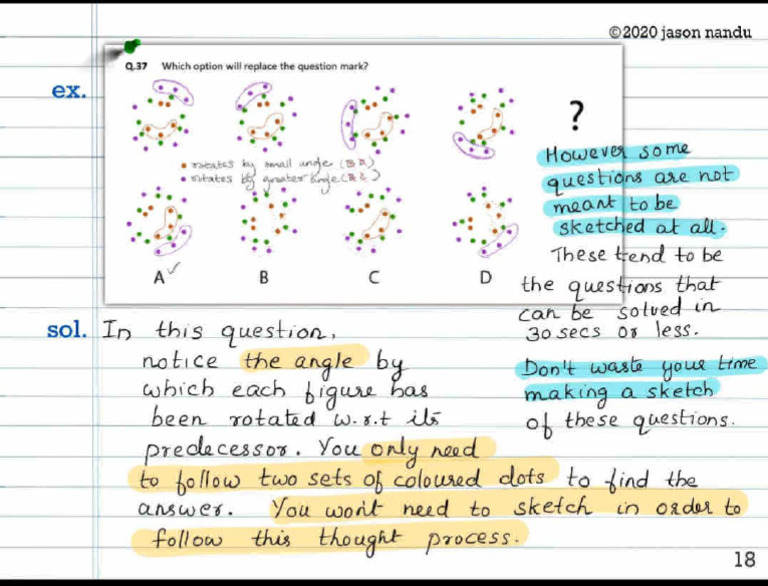 ©2020 jason nandu
Q.37 Which option will replace the question mark?
ex.
?
• rotates by small angle (
• rotates by greater angle (
A✓
B
C
D
However some
questions are not
meant to be
sketched at all.
These tend to be
the questions that
can be solved in
30 secs or less.
Don't waste your time
making a sketch
of these questions.
sol. In this question,
notice the angle by
which each figure has
been rotated w.r.t its
predecessor. You only need
to follow two sets of coloured dots to find the
answer. You wont need to sketch in order to
follow this thought process.
18